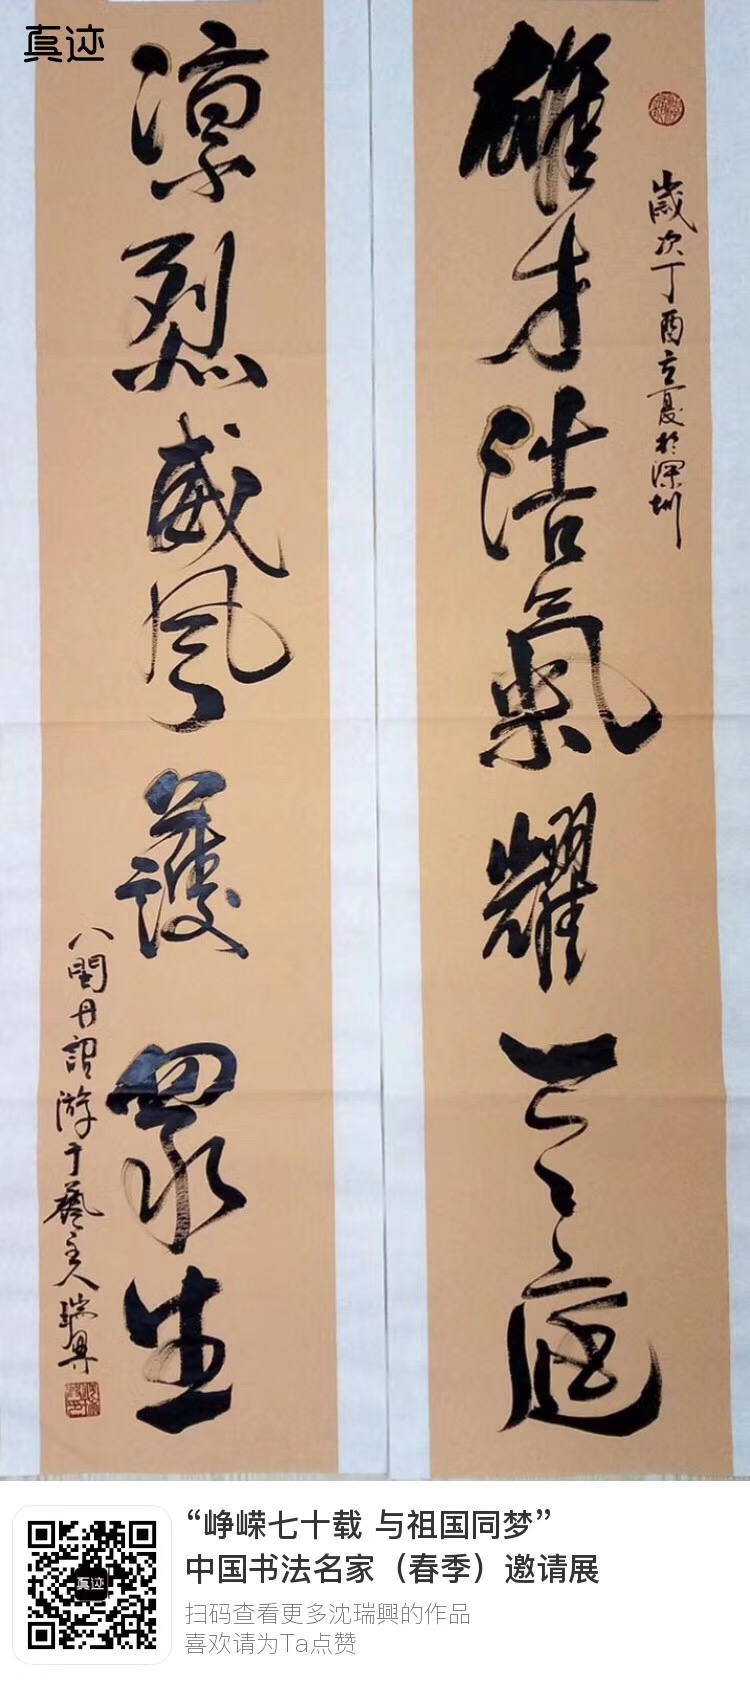 真迹
歲次丁酉立夏於深圳
雄才浩氣耀三庭
凛烈威風護眾生
八閩丹詔游于藝主人瑞興
真迹
“峥嵘七十载 与祖国同梦”
中国书法名家（春季）邀请展
扫码查看更多沈瑞興的作品
喜欢请为Ta点赞